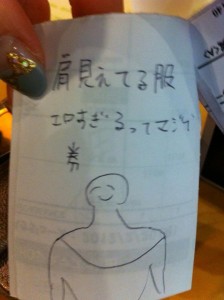 肩見えてる服
エロすぎるってマジで
券